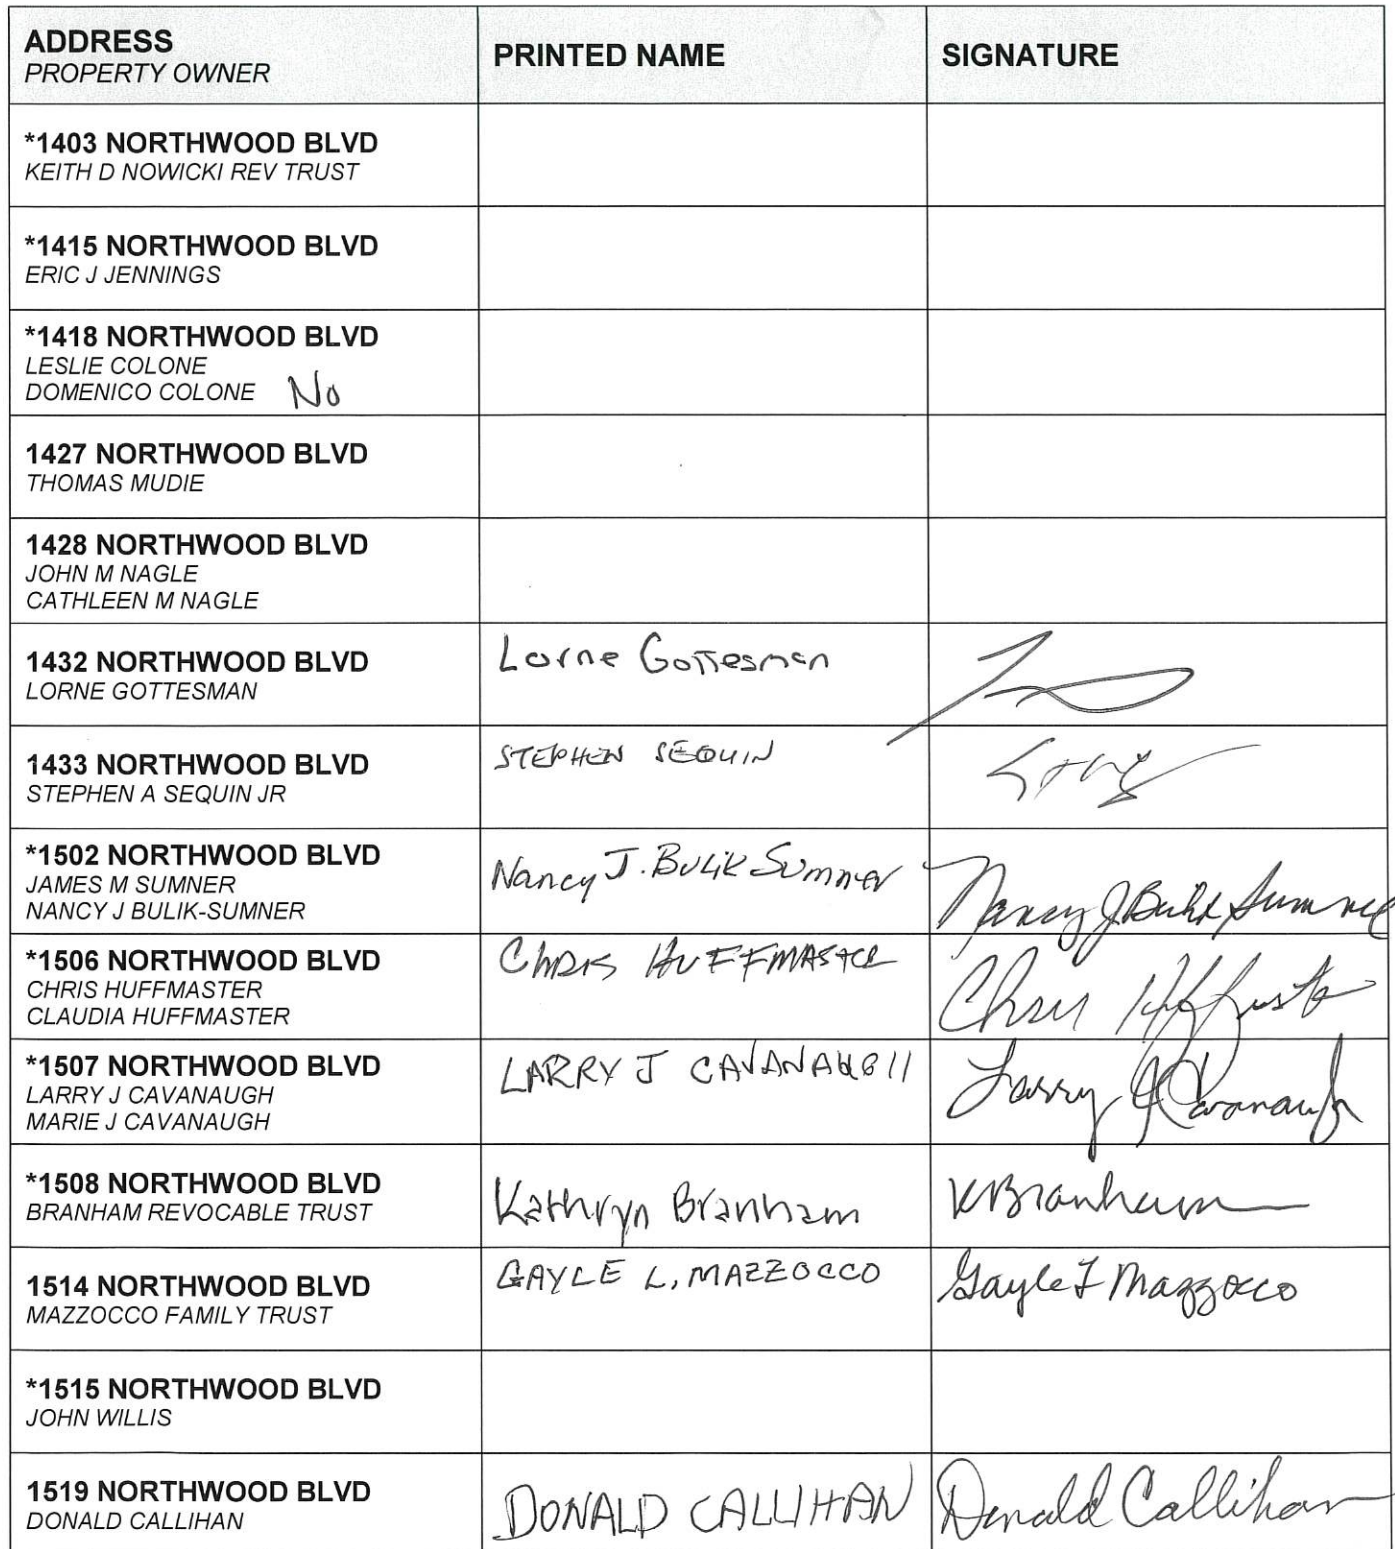 ADDRESS
PROPERTY OWNER
PRINTED NAME
SIGNATURE
*1403 NORTHWOOD BLVD
KEITH D NOWICKI REV TRUST
*1415 NORTHWOOD BLVD
ERIC J JENNINGS
*1418 NORTHWOOD BLVD
LESLIE COLONE
DOMENICO COLONE No
1427 NORTHWOOD BLVD
THOMAS MUDIE
1428 NORTHWOOD BLVD
JOHN M NAGLE
CATHLEEN M NAGLE
1432 NORTHWOOD BLVD
LORNE GOTTESMAN
Lorne Gottesman
1433 NORTHWOOD BLVD
STEPHEN A SEQUIN JR
STEPHEN SEQUIN
*1502 NORTHWOOD BLVD
JAMES M SUMNER
NANCY J BULIK-SUMNER
Nancy J. Bulik Sumner
Nancy J Bulik Sumner
*1506 NORTHWOOD BLVD
CHRIS HUFFMASTER
CLAUDIA HUFFMASTER
CHRIS HUFFMASTER
Chris Huffmaster
*1507 NORTHWOOD BLVD
LARRY J CAVANAUGH
MARIE J CAVANAUGH
LARRY J CAVANAUGH
Larry J Cavanaugh
*1508 NORTHWOOD BLVD
BRANHAM REVOCABLE TRUST
Kathryn Branham
K Branham
1514 NORTHWOOD BLVD
MAZZOCCO FAMILY TRUST
GAYLE L. MAZZOCCO
Gayle L Mazzocco
*1515 NORTHWOOD BLVD
JOHN WILLIS
1519 NORTHWOOD BLVD
DONALD CALLIHAN
DONALD CALLIHAN
Donald Callihan